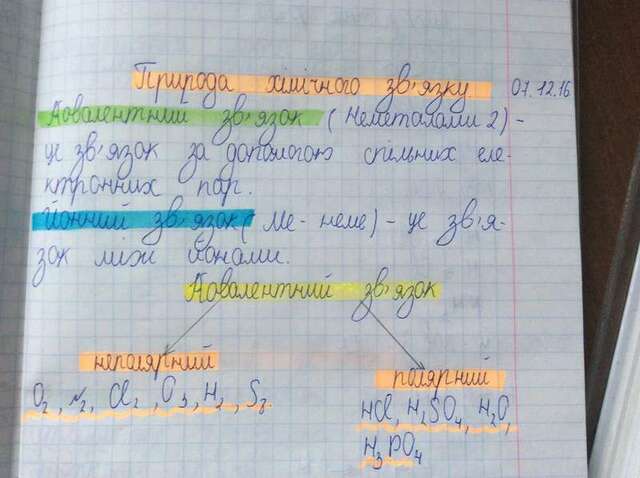 Природа хімічного зв'язку 07.12.16
Ковалентний зв'язок (неметалами 2) -
це зв'язок за допомогою спільних еле-
ктронних пар.
Йонний зв'язок (Ме - неме) - це зв'я-
зок між йонами.
Ковалентний зв'язок
неполярний
полярний
O₂, N₂, Cl₂, O₃, H₂, S₈
HCl, H₂SO₄, H₂O,
H₃PO₄